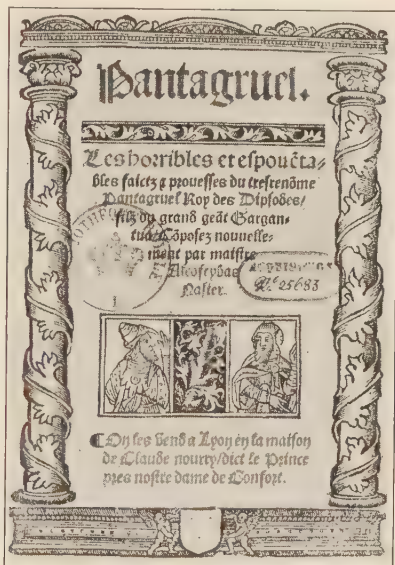 Pantagruel.
Les horribles et espouēta-
bles faictz ⁊ prouesses du tresrenōme
Pantagruel Roy des Dipsodes/
filz du grand geāt Gargan-
tua/ Cōposez nouuelle-
ment par maistre
Alcofrybas
Nasier.
No 25683
¶ On les vend a Lyon en la maison
de Claude nourry/ dict le Prince
pres nostre dame de Confort.